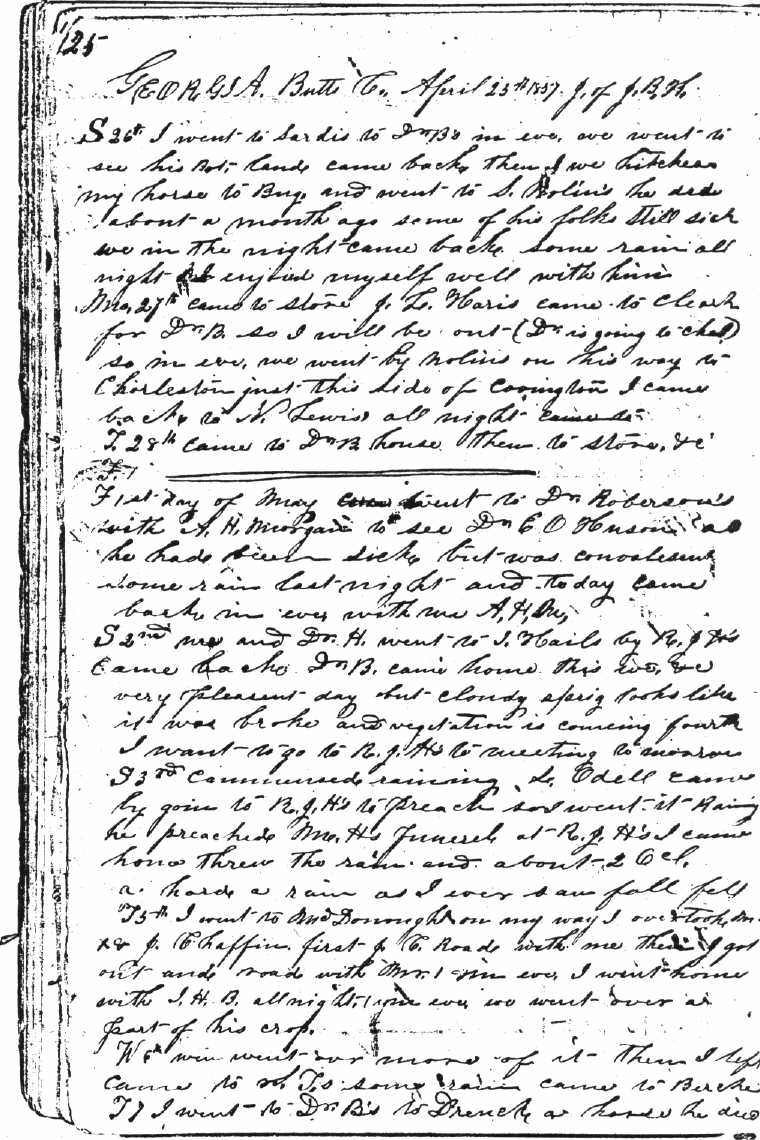 125
GEORGIA. Butts C. April 25th 1857. J. of J. B. H.
S 26th I went to Sardis to Dr Bs in eve, we went to
see his Bot. land came back then we hitched
my horse to Bug. and went to S. he died
about a month ago some of his folks still sick
we in the night came back some rain all
night I enjoied myself well with him
Mo, 27th came to store J. L. Haris came to Clerk
for Dr B. so I will be out (Dr is going to chal)
so in eve, we went by Nolins on his way to
Charleston just this side of Covington I came
back to N. Lewis all night came to
T. 28th came to Dr B house then to store, &c
F. 1
F 1st day of May went to Dr Roberson's
with A. H. Morgan to see Dr E O Huson as
he had been sick but was convalesent
some rain last night and today came
back in eve with me A, H, M,
S 2nd me and Dr. H. went to J. Hails by R. J H's
came back Dr B. came home this eve, &c
very pleasent day but cloudy sprig looks like
it was broke and vegetation is comeing fourth
I want to go to R. J. H's to meeting to morrow
S 3rd Cammensed raining L. Odell came
by goin to R. J H's to preach so I went it Raing
he preached Mr. Hs funerel at R. J. H's I came
home threw the rain and about 2 Ocl.
a hard a rain as I ever saw fall fell
T 5th I went to McDonough on my way I overtook Mr.
J. Chaffin. first J. C. Road with me then I got
out and road with Mr. in eve I went home
with J. H. B. all night, in eve we went over a
part of his crop.
W 6th went over more of it then I left
came to T,s some rain came to
T 7 I went to Dr B's to Drench a horse he died